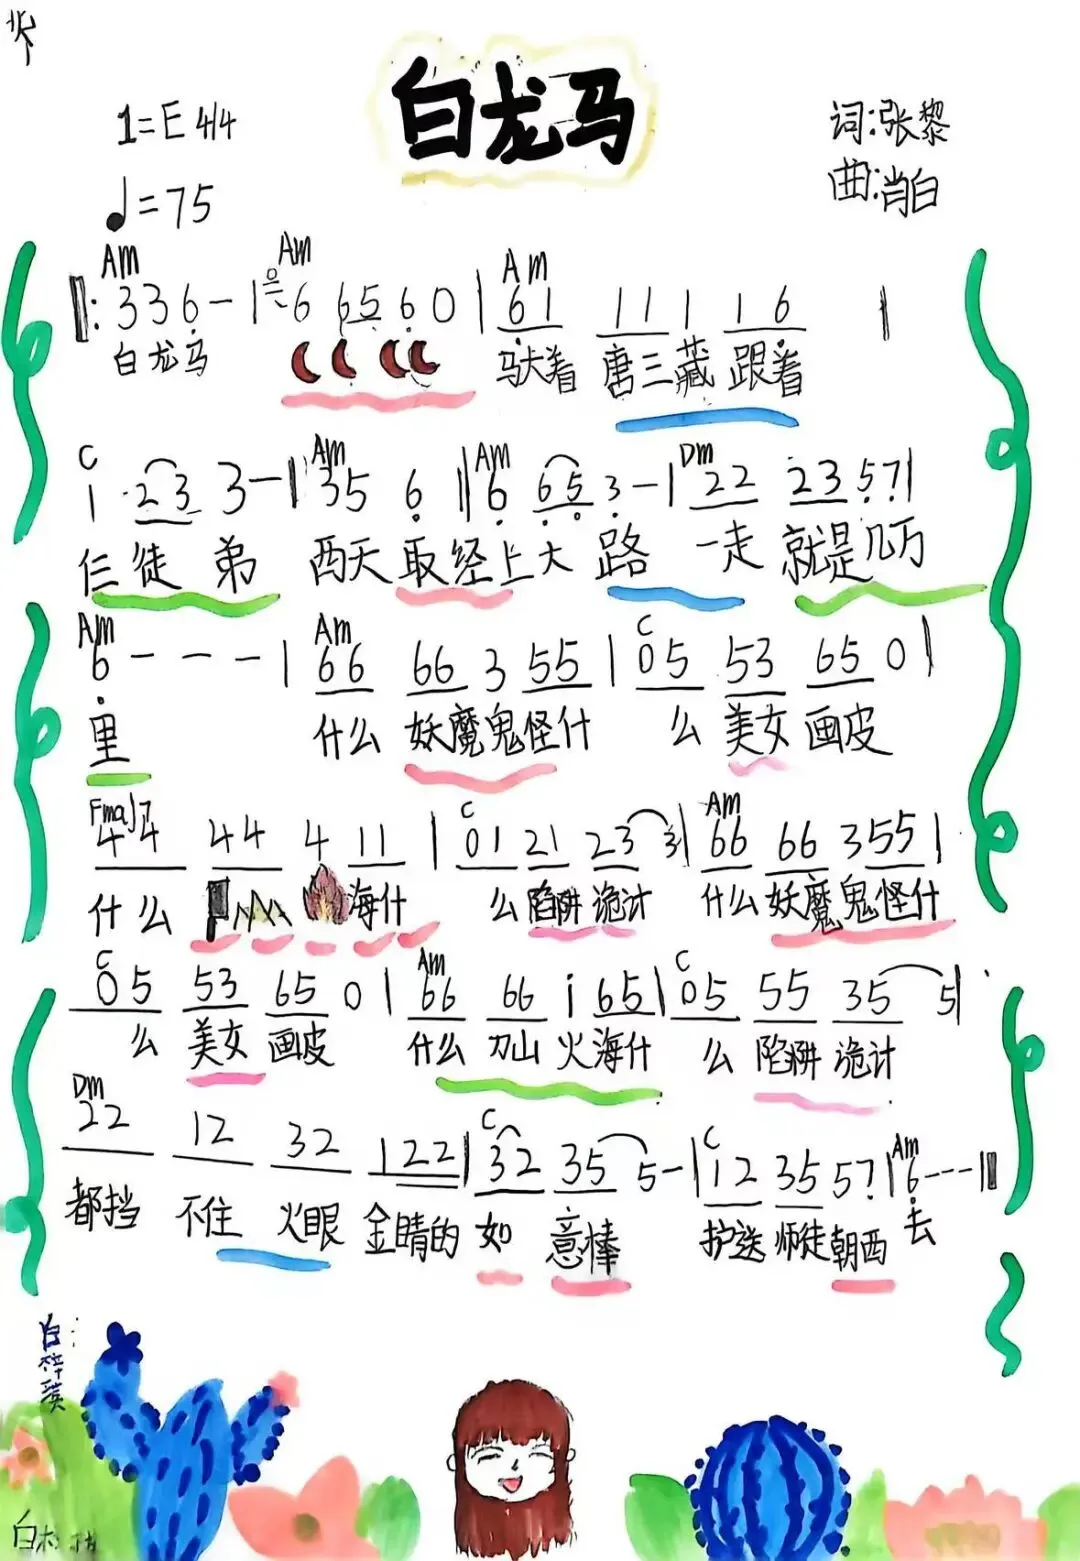 白龙马
1=E 4/4
词:张黎
曲:肖白
♩=75
Am Am Am
‖: 3 3 6 - | 6 6 5 6 0 | 6 1 1 1 1 1 6 |
白龙马 驮着 唐三藏 跟着
C Am Am Dm
1 2 3 3 - | 3 5 6 ‖ 6 6 5 3 - | 2 2 2 3 5 7 |
仨徒弟 西天取经上大路 一走就是几万
Am Am C
6 - - - | 6 6 6 6 3 5 5 | 0 5 5 3 6 5 0 |
里 什么 妖魔鬼怪什 么 美女 画皮
Fmaj7 C Am
4 4 4 4 4 1 1 | 0 1 2 1 2 3 3 | 6 6 6 6 3 5 5 |
什么 海什 么 陷阱 诡计 什么妖魔鬼怪什
C Am C
0 5 5 3 6 5 0 | 6 6 6 6 i 6 5 | 0 5 5 5 3 5 5 |
么 美女 画皮 什么 刀山 火海什 么 陷阱 诡计
Dm C C Am
2 2 1 2 3 2 1 2 2 | 3 2 3 5 5 - | 1 2 3 5 5 7 | 6 - - - ‖
都挡 不住 火眼 金睛的 如 意棒 护送 师徒 朝西 去